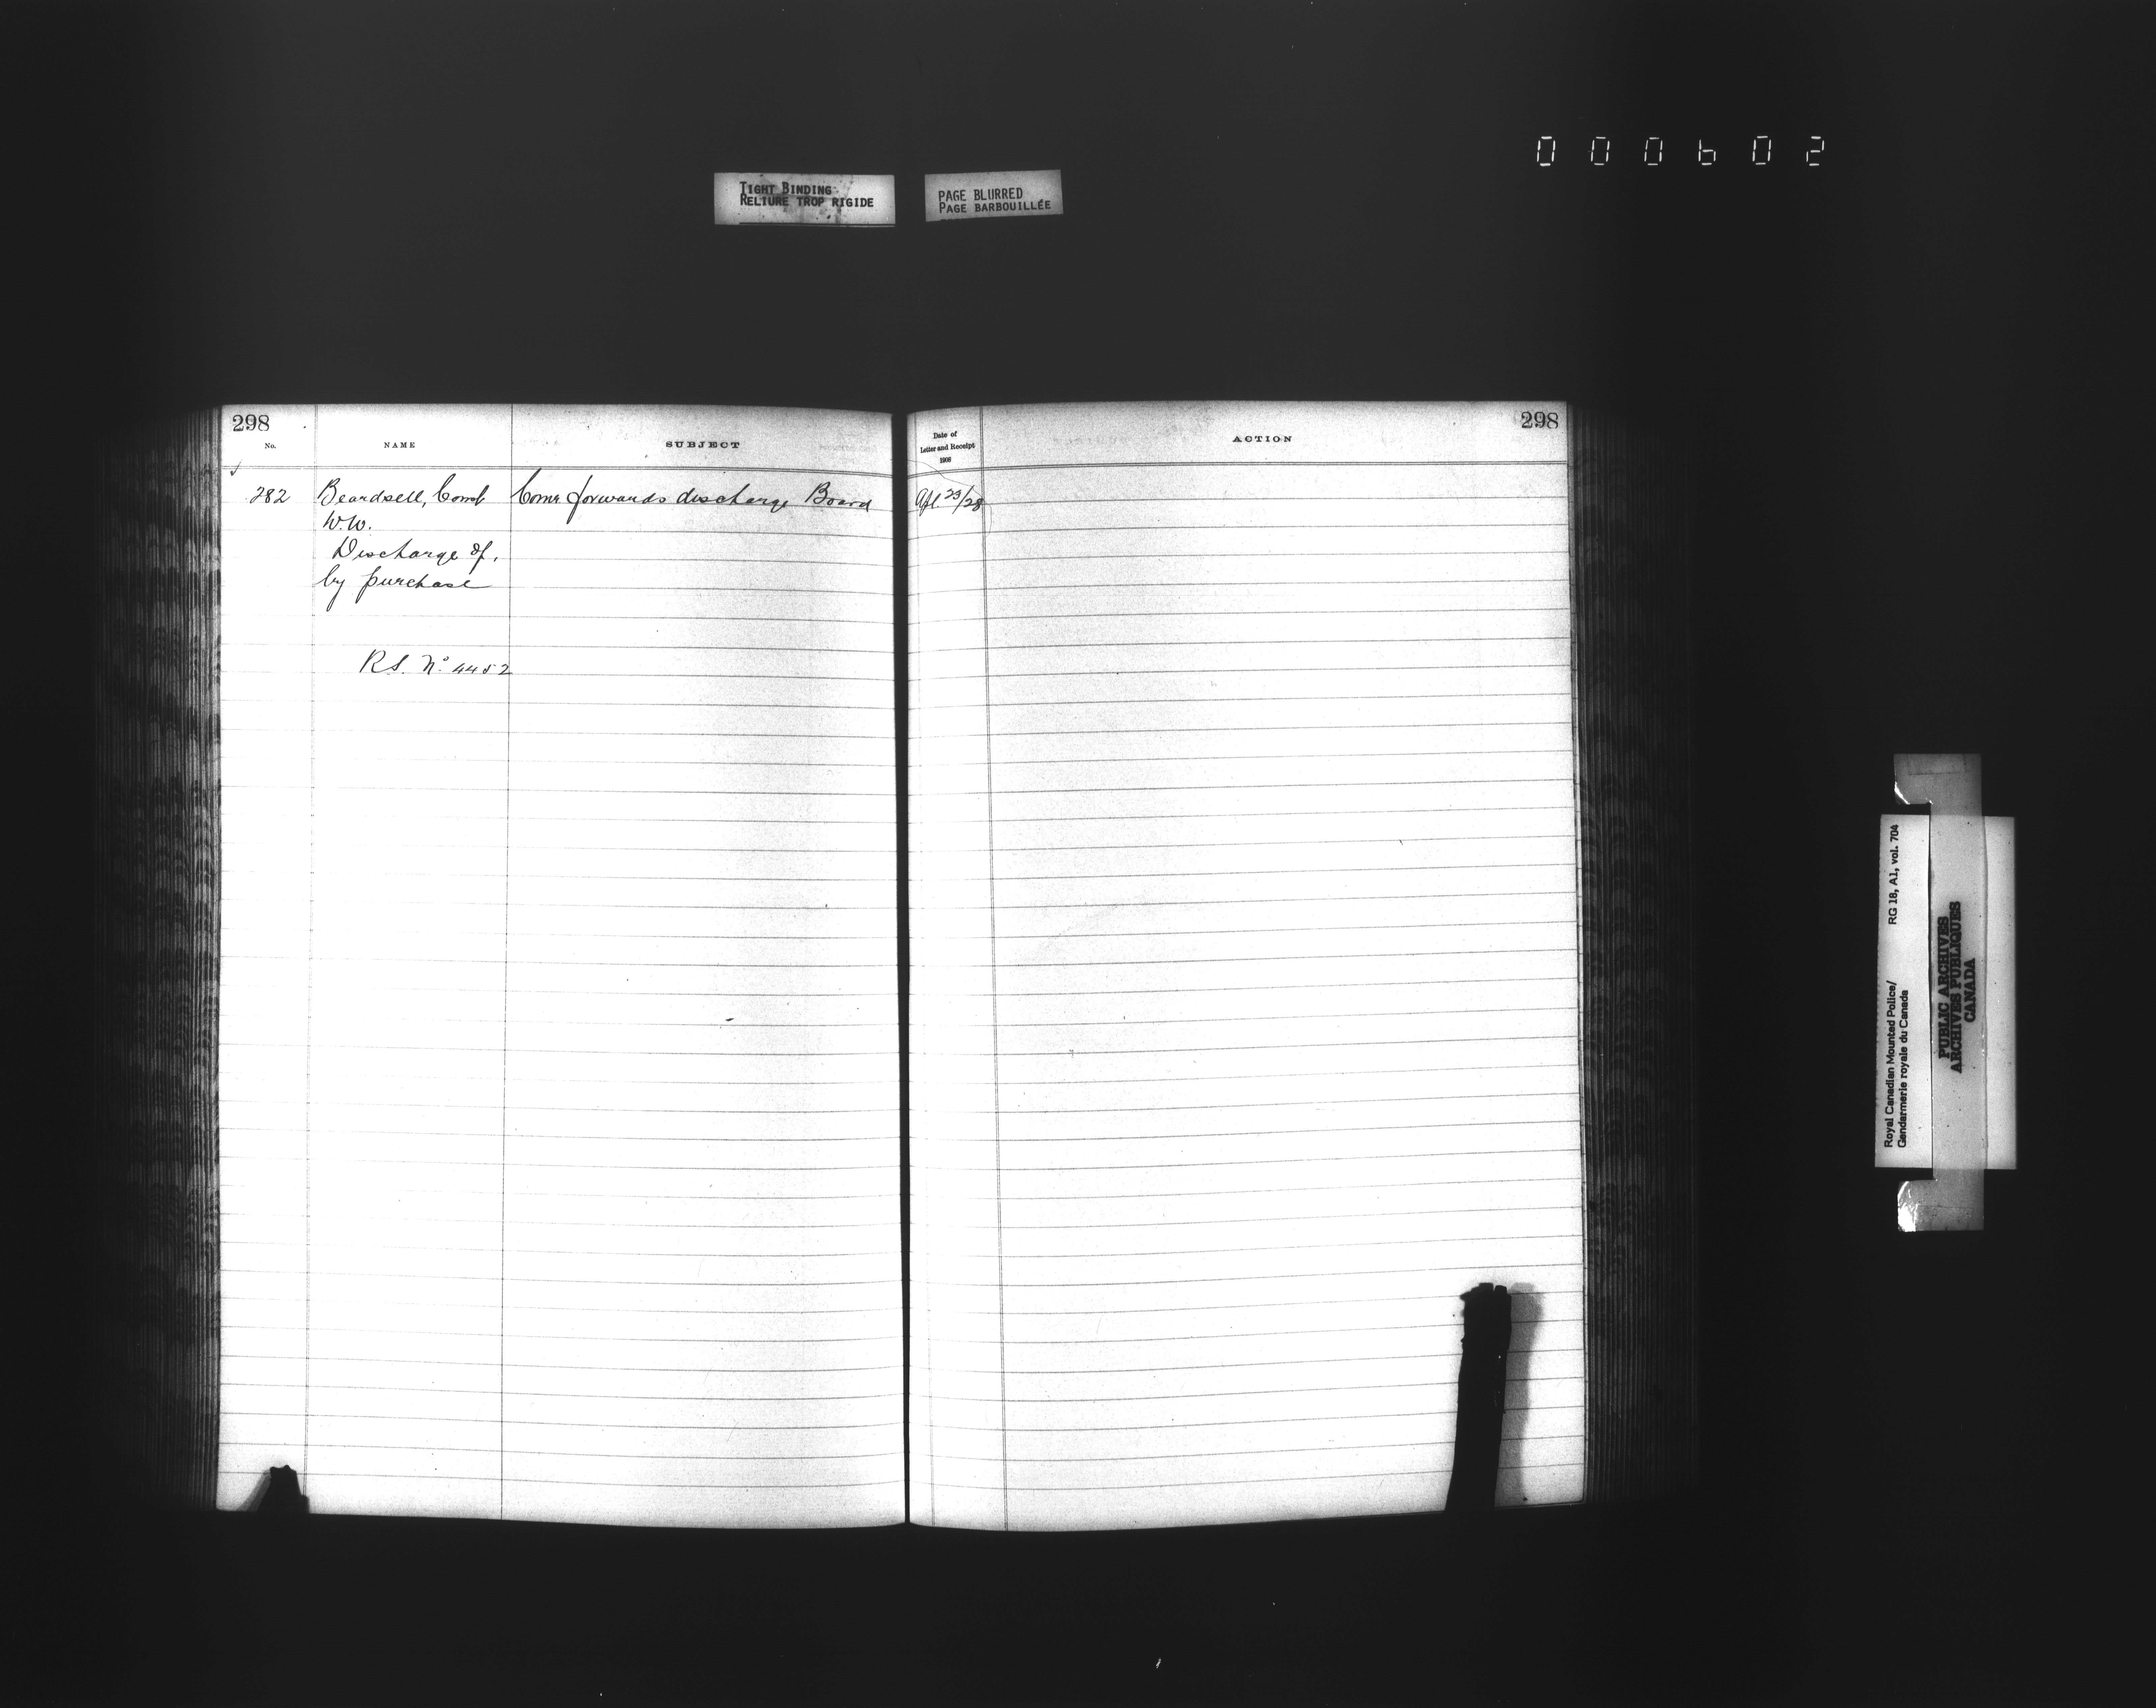 000602
TIGHT BINDING
RELIURE TROP RIGIDE
PAGE BLURRED
PAGE BARBOUILLÉE
298
No.
NAME
SUBJECT
282
Beardsell, Const
W.W.
Discharge of,
by purchase
R.S. No 4452
Comr forwards discharge Board
298
Date of
Letter and Receipt
1908
ACTION
Apl. 23/28
Royal Canadian Mounted Police/
Gendarmerie royale du Canada
RG 18, A1, vol. 704
PUBLIC ARCHIVES
ARCHIVES PUBLIQUES
CANADA